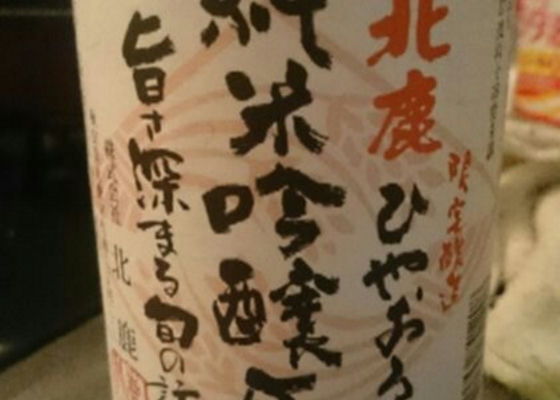 限定醸造
北鹿
ひやおろ
純米吟醸原
旨さ深まる旬の
株式会社 北鹿